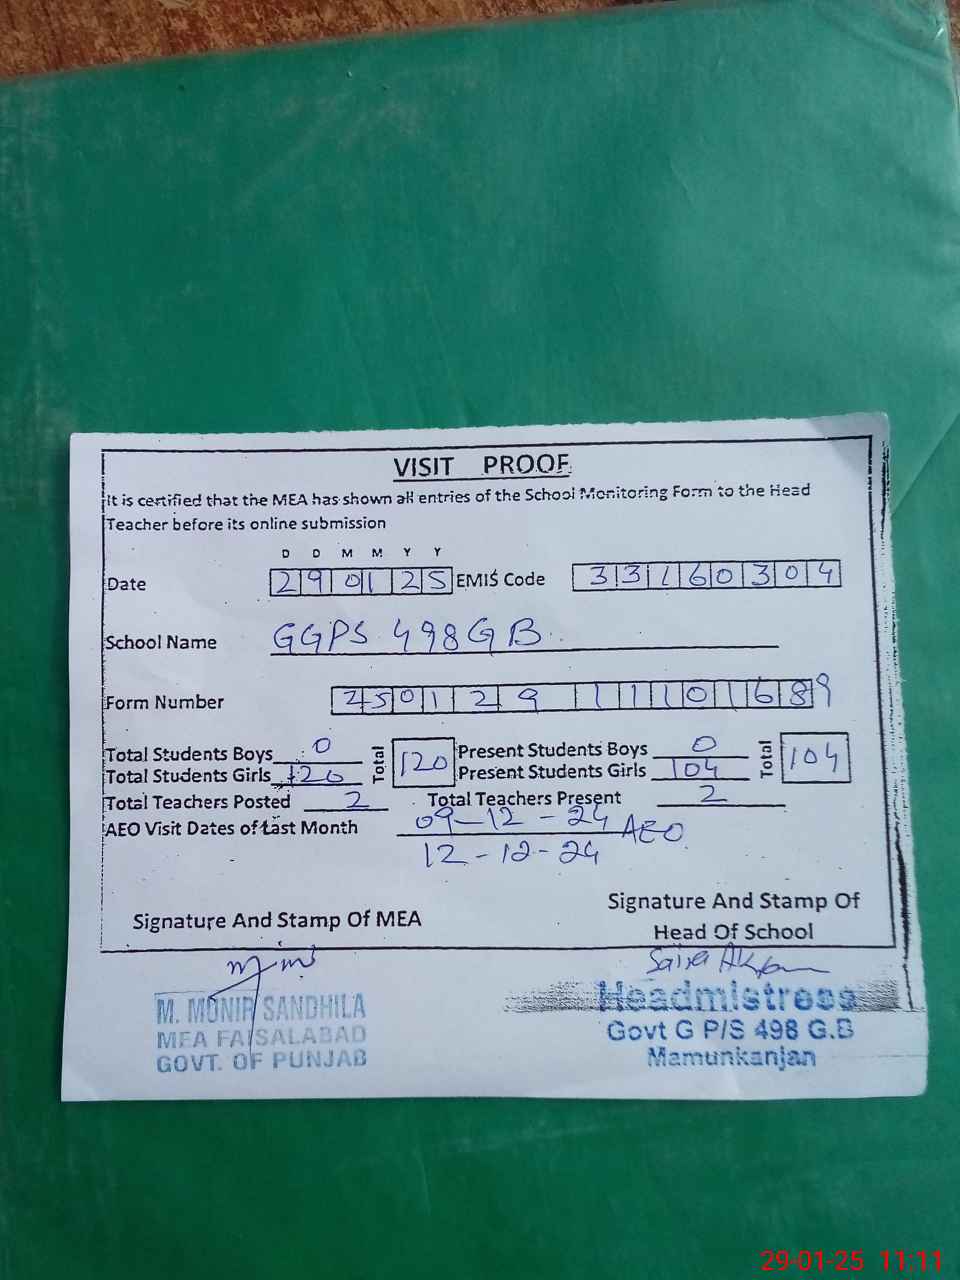 VISIT PROOF
It is certified that the MEA has shown all entries of the School Monitoring Form to the Head
Teacher before its online submission
D D M M Y Y
Date 290125 EMIS Code 33160304
School Name GGPS 498GB
Form Number 250129 11101689
Total Students Boys 0 Total 120 Present Students Boys 0 Total 104
Total Students Girls 120 Present Students Girls 104
Total Teachers Posted 2 Total Teachers Present 2
AEO Visit Dates of Last Month 09-12-24 AEO
12-12-24
Signature And Stamp Of MEA Signature And Stamp Of
Head Of School
Saira
M. MUNIR SANDHILA Headmistress
MEA FAISALABAD Govt G P/S 498 G.B
GOVT. OF PUNJAB Mamunkanjan
29-01-25 11:11